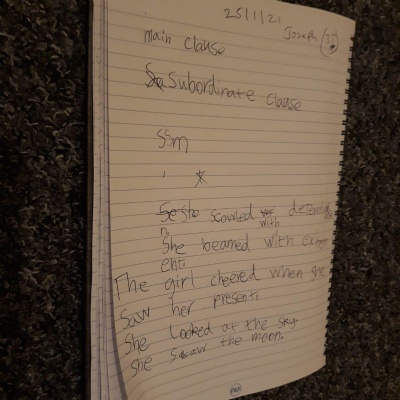 25/1/21
Joseph
main clause
Subordinate clause
SSM
she scowled with
She beamed with
The girl cheered when she
saw her present.
She looked at the sky.
She saw the moon.